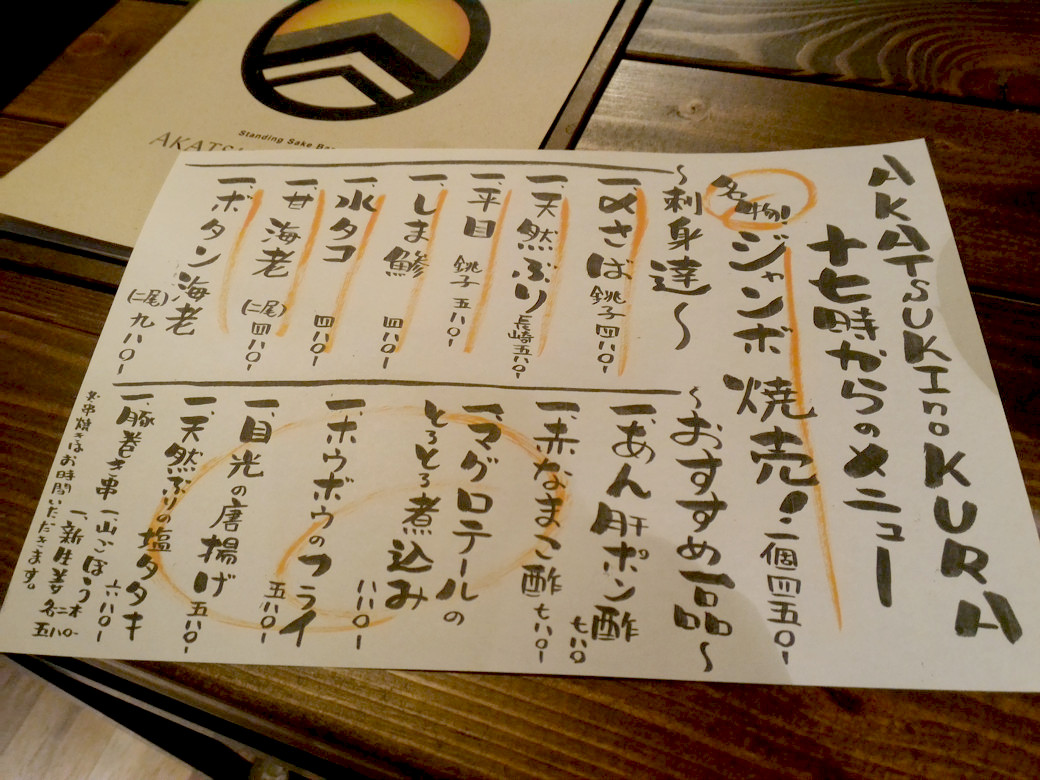 AKATSUKI no KURA
十七時からのメニュー
名物!
ジャンボ焼売!二個四五〇-
〜刺身達〜
一、〆さば 銚子 四八〇-
一、天然ぶり 長崎 五八〇-
一、平目 銚子 五八〇-
一、しま鯵 四八〇-
一、水タコ 四八〇-
一、甘海老(二尾)四八〇-
一、ボタン海老(二尾)九八〇-
〜おすすめ一品〜
一、あん肝ポン酢 七八〇
一、赤なまこ酢 七八〇-
一、マグロテールの
とろとろ煮込み
一、ホウボウのフライ
一、目光の唐揚げ 五八〇-
一、天然ぶりの塩タタキ
一、豚巻き串 一、山ごぼう 六八〇-
一、新生姜 各二本 五八〇-
串焼きはお時間いただきます。
Standing Sake Ba
AKATS